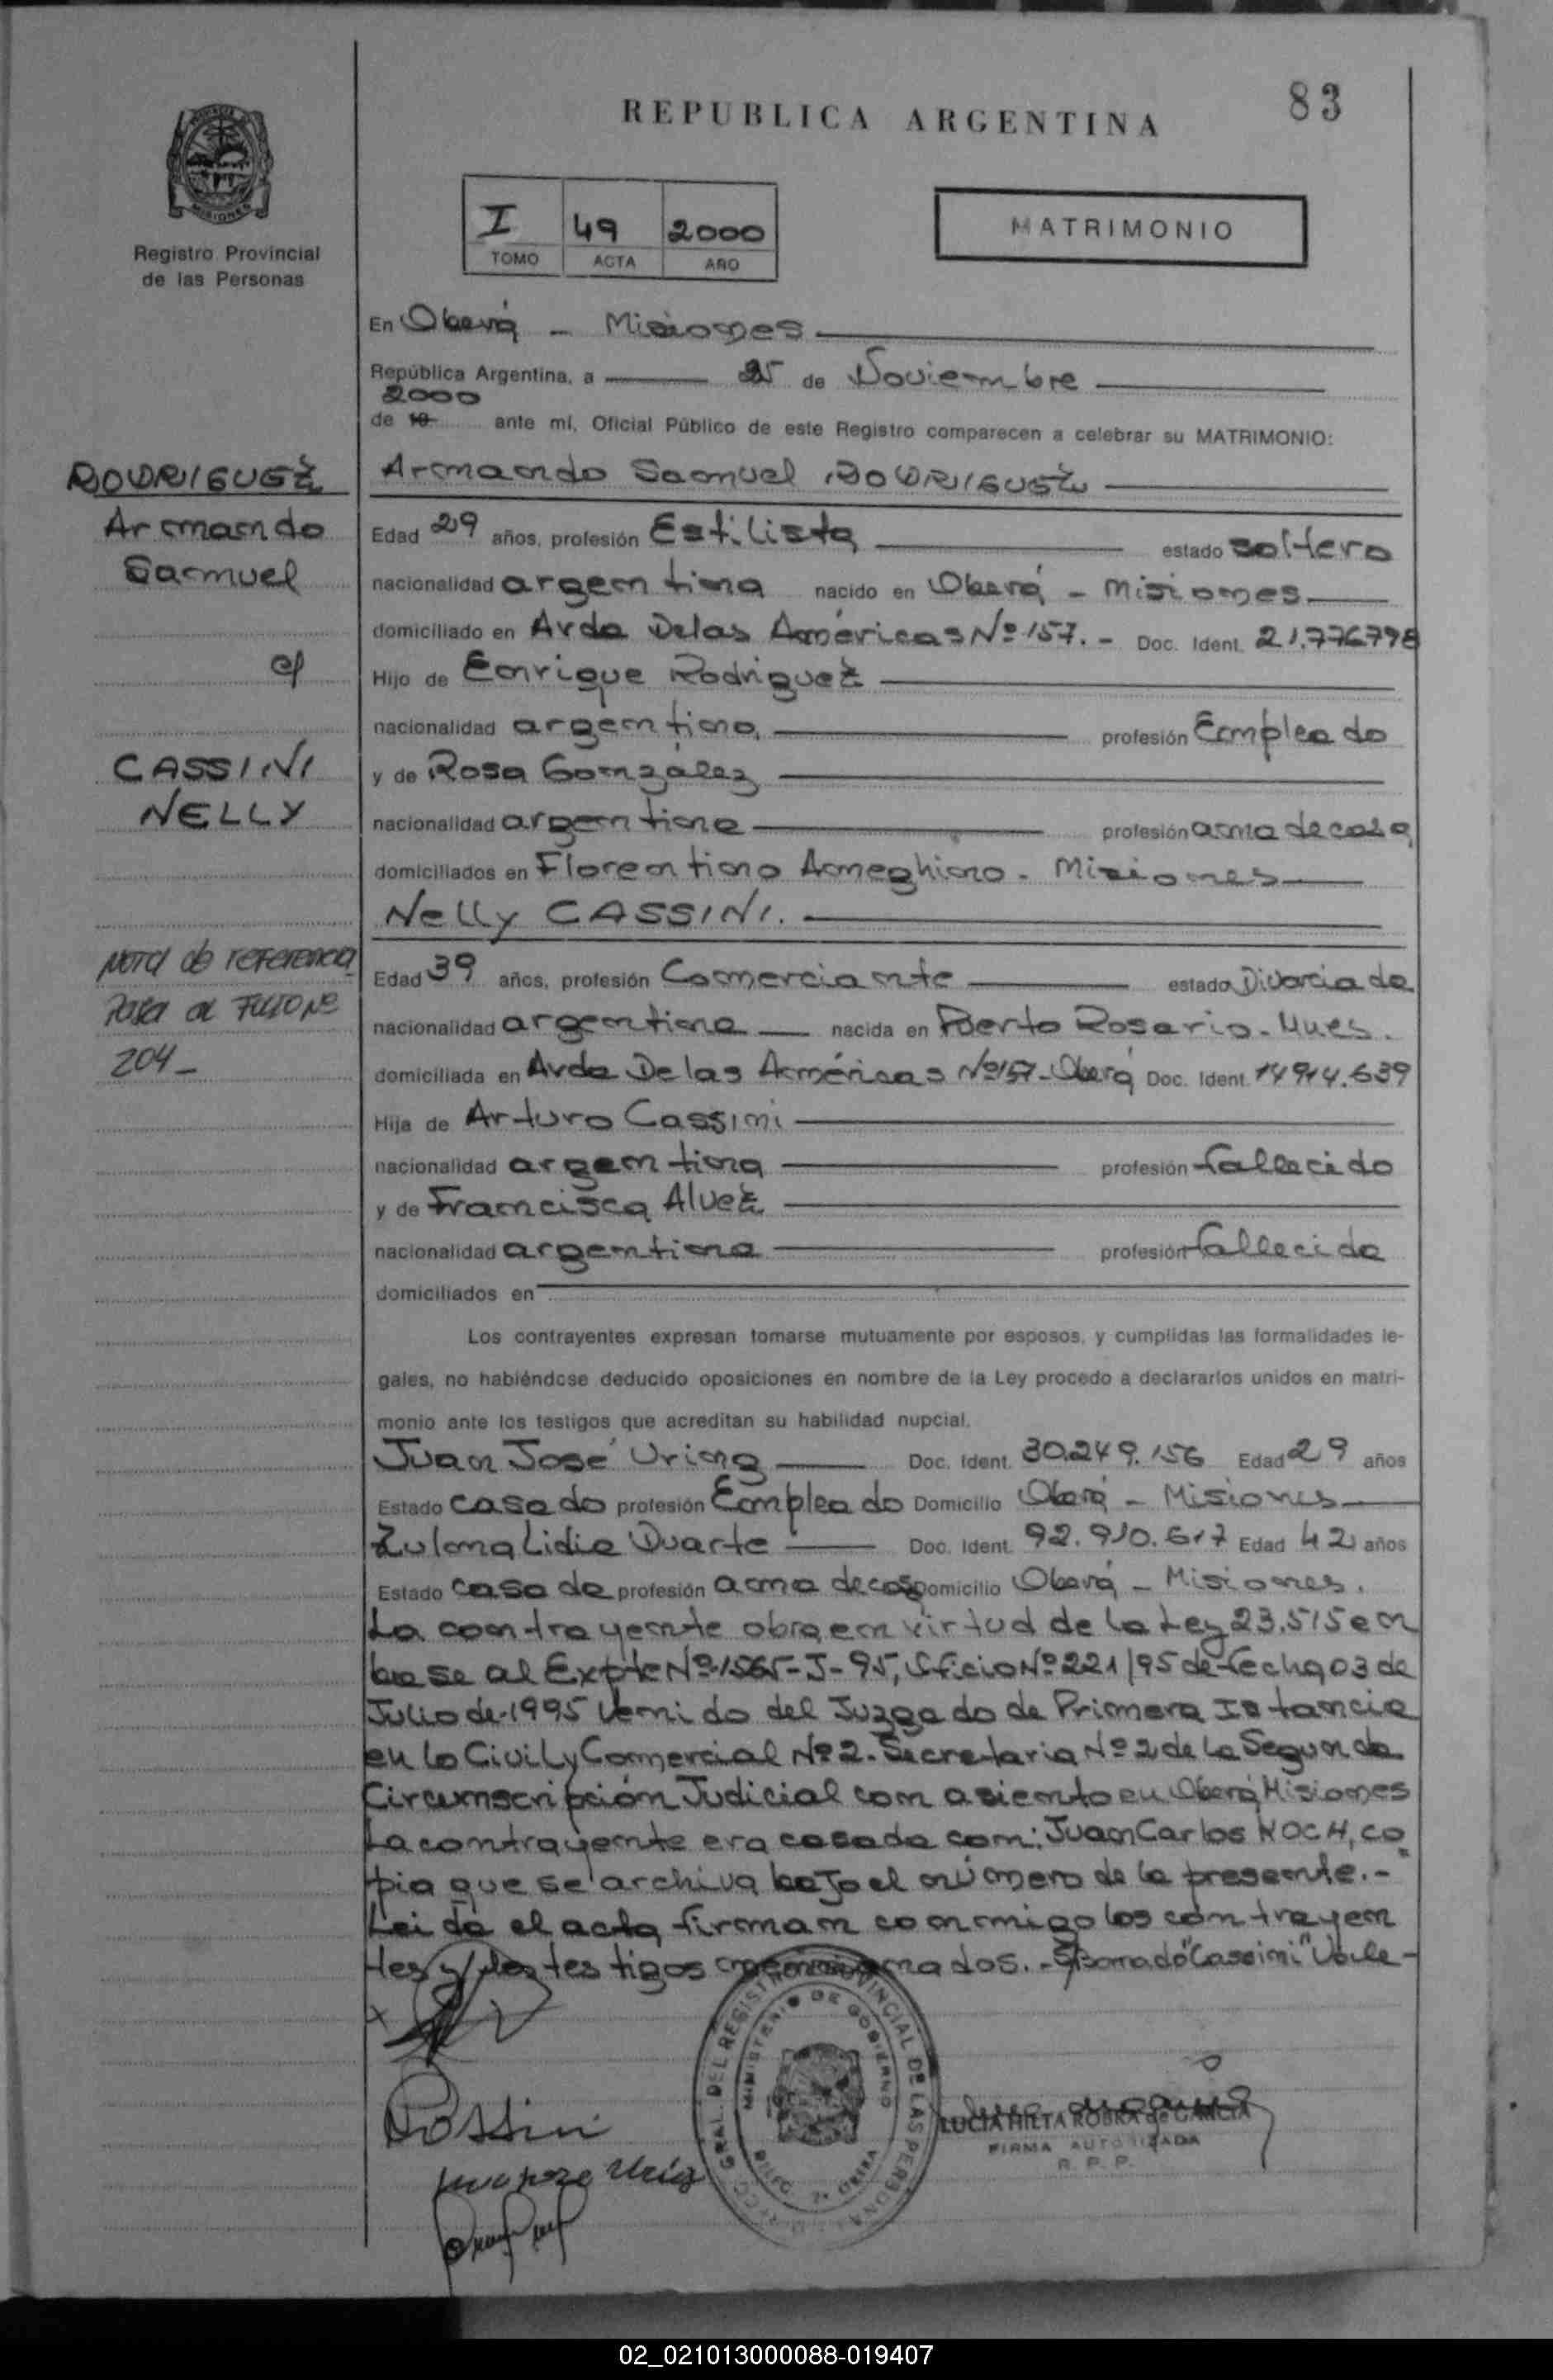 83
REPUBLICA ARGENTINA
MISIONES
Registro Provincial
de las Personas
I 49 2000
TOMO ACTA AÑO
MATRIMONIO
En Oberá - Misiones
República Argentina, a 25 de Noviembre
2000
de 19 ante mí, Oficial Público de este Registro comparecen a celebrar su MATRIMONIO:
RODRIGUEZ
Armando
Samuel
c/
CASSINI
NELLY
Nota de referencia
Pasa al Folio Nº
204-
Armando Samuel RODRIGUEZ
Edad 29 años, profesión Estilista estado soltero
nacionalidad argentina nacido en Oberá - Misiones
domiciliado en Avda Delas Américas Nº 157.- Doc. Ident. 21.776798
Hijo de Enrique Rodriguez
nacionalidad argentino, profesión Empleado
y de Rosa Gonzalez
nacionalidad argentina profesión ama de casa
domiciliados en Florentino Ameghino - Misiones
Nelly CASSINI.
Edad 39 años, profesión Comerciante estado Divorciada
nacionalidad argentina nacida en Puerto Rosario - Mnes.
domiciliada en Avda De las Américas Nº 157 - Oberá Doc. Ident. 14914.639
Hija de Arturo Cassini
nacionalidad argentina profesión fallecido
y de Francisca Alvez
nacionalidad argentina profesión fallecida
domiciliados en
Los contrayentes expresan tomarse mutuamente por esposos, y cumplidas las formalidades le-
gales, no habiéndose deducido oposiciones en nombre de la Ley procedo a declararlos unidos en matri-
monio ante los testigos que acreditan su habilidad nupcial.
Juan José Urina Doc. Ident. 30.249.156 Edad 29 años
Estado casado profesión Empleado Domicilio Oberá - Misiones
Zulma Lidia Duarte Doc. Ident. 92.910.617 Edad 42 años
Estado casada profesión ama de casa Domicilio Oberá - Misiones.
La contrayente obra en virtud de la Ley 23.515 en
base al Expte Nº 1565-J-95, Oficio Nº 221/95 de fecha 03 de
Julio de 1995 Venido del Juzgado de Primera Istancia
en lo Civil y Comercial Nº 2. Secretaria Nº 2 de la Segunda
Circunscripción Judicial con asiento en Oberá Misiones
La contrayente era casada con: Juan Carlos KOCH, co
pia que se archiva bajo el número de la presente.-
Leida el acta firman conmigo los contrayen
tes y los testigos mencionados.- S/Borrado "Cassini" Vale-
GRAL. DEL REGISTRO PROVINCIAL DE LAS PERSONAS
MINISTERIO DE GOBIERNO
LUCIA HILTA ROBRA de GARCIA
FIRMA AUTORIZADA
R. P. P.
02_021013000088-019407